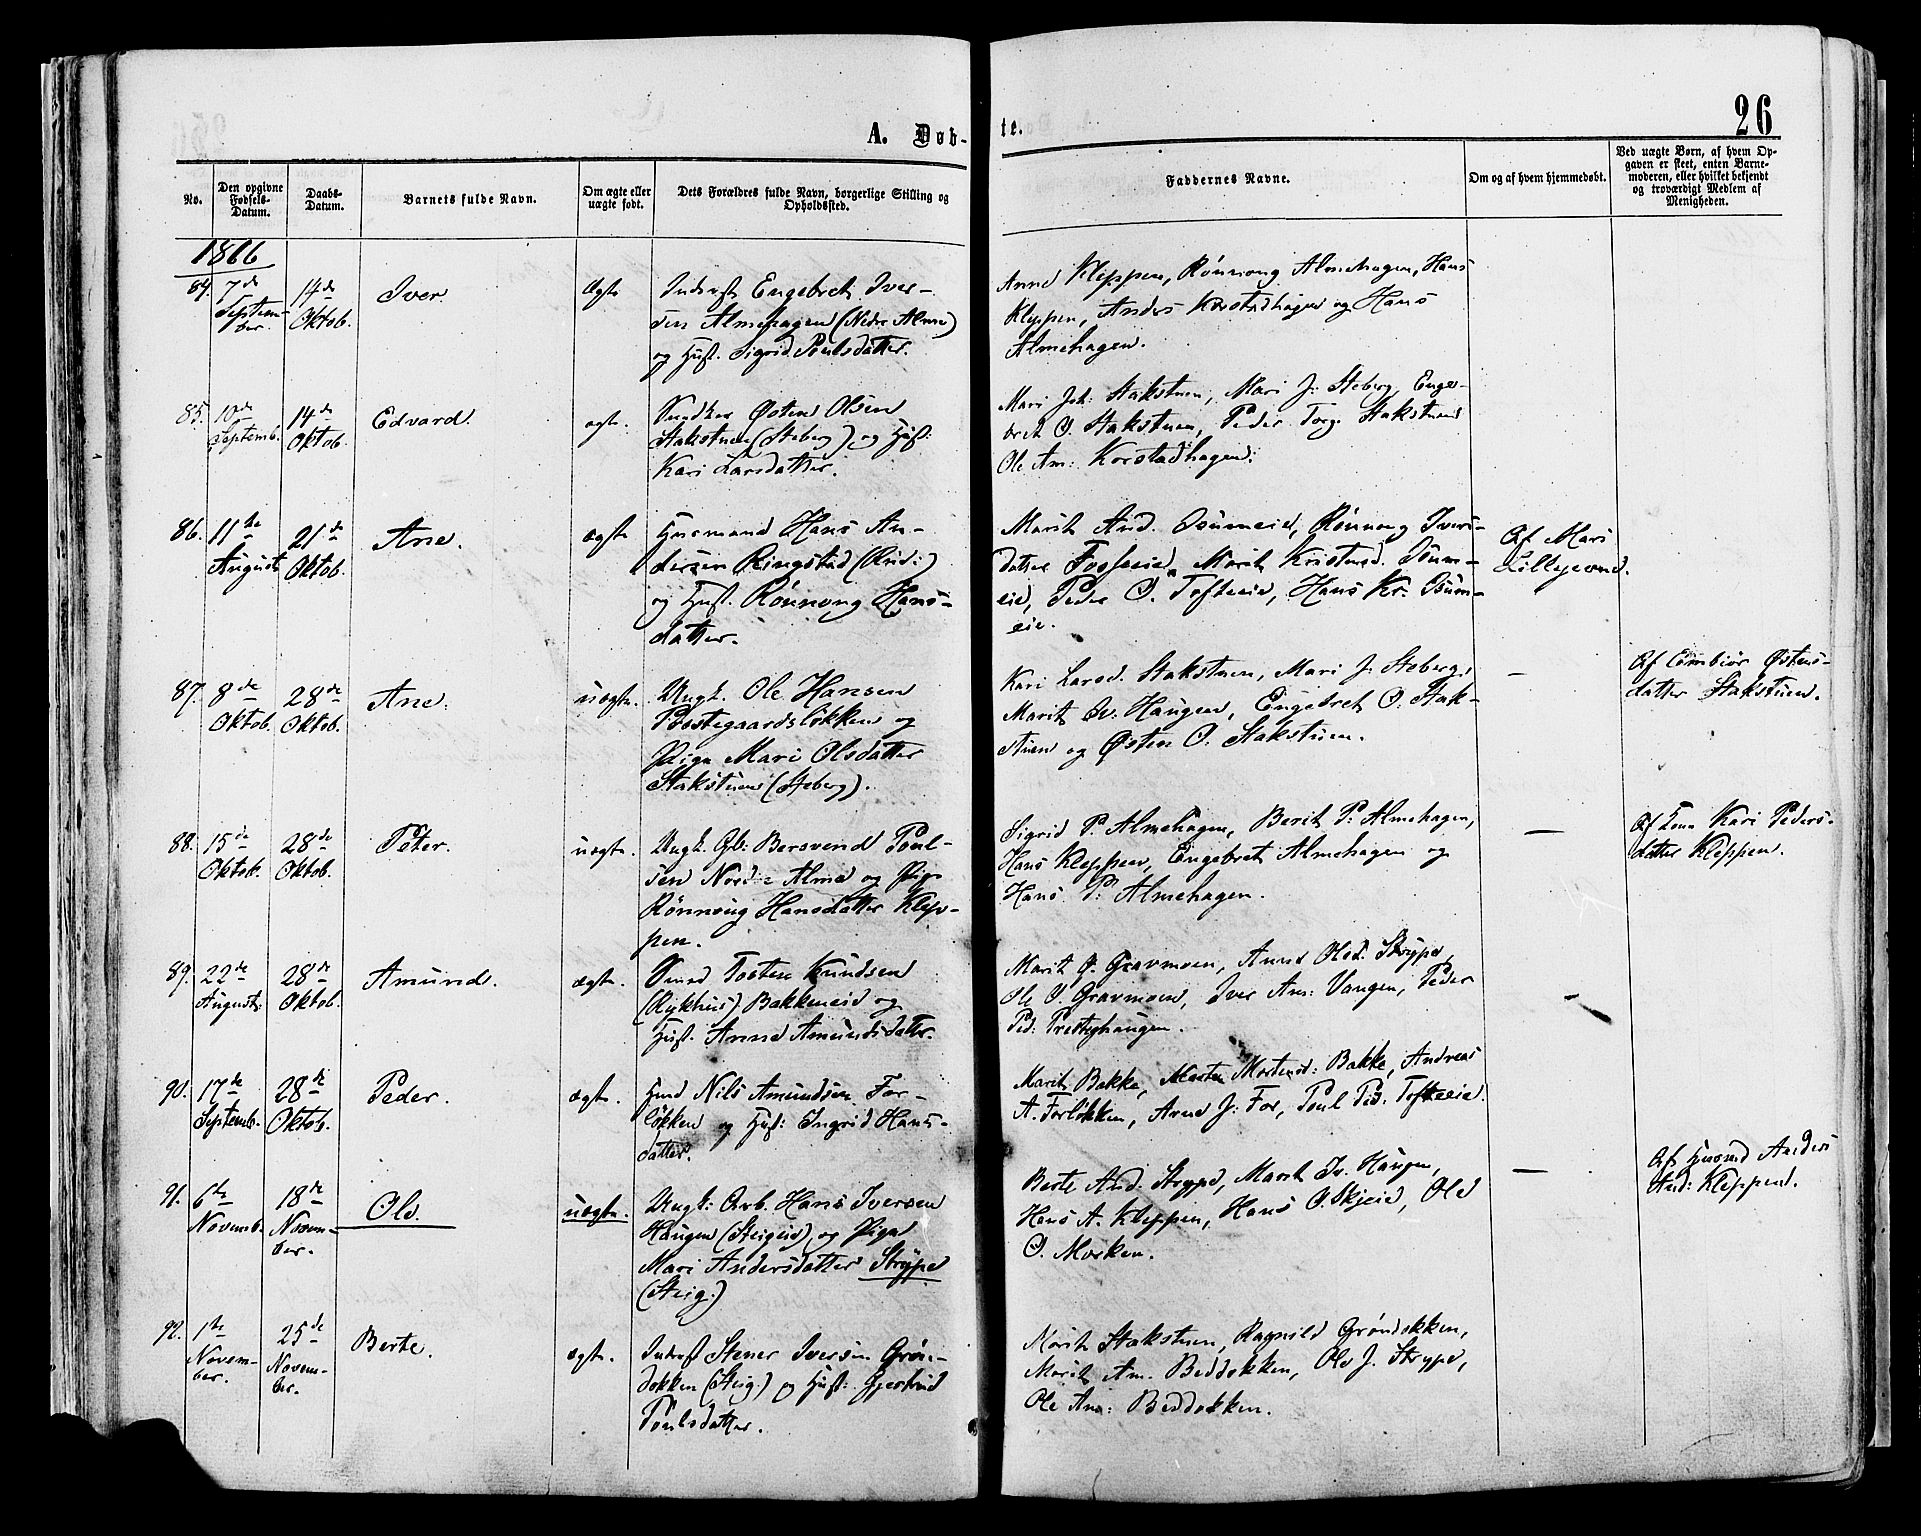 26
A. Døb-
te.
No.
Den opgivne
Fødsels-
Datum.
Daabs-
Datum.
Barnets fulde Navn.
Om ægte eller
uægte født.
Dets Forældres fulde Navn, borgerlige Stilling og
Opholdssted.
Faddernes Navne.
Om og af hvem hjemmedøbt.
Ved uægte Børn, af hvem Op-
gaven er skeet, enten Barne-
moderen, eller hvilket bekjendt
og troværdigt Medlem af
Menigheden.
1866
84.
7de
Septem-
ber.
14de
Oktob.
Iver.
Ægte
Inderst Engebret Iver-
sen Almehagen (Nedre Alme)
og Hust. Sigrid Poulsdatter.
Anne Kleppen, Rønnoug Almehagen, Hans
Kleppen, Anders Korstadhagen og Hans
Almehagen.
85.
10de
Septemb.
14de
Oktob.
Edvard.
ægte.
Snedker Østen Olsen
Stakstuen (Steberg) og Hust:
Kari Larsdatter.
Mari Joh: Stakstuen, Mari J: Steberg, Enge-
bret O. Stakstuen, Peder Torg. Stakstuen
Ole Am: Korstadhagen.
86.
11te
August
21de
Oktob.
Ane.
ægte
Husmand Hans An-
dersen Ringstad (Rind:)
og Hust. Rønnoug Hans-
datter.
Marit And. Isumeie, Rønnoug Ivers-
datter Fosseeie, Marit Kristensd. Isum-
eie, Peder O. Tofteeie, Hans Kr. Isum-
eie.
Af Mari
Lillejevne.
87.
8de
Oktob.
28de
Oktob.
Ane.
uægte.
Ungk. Ole Hansen
Postegaardsløkken og
Pige Mari Olsdatter
Stakstuen (Steberg).
Kari Larsd. Stakstuen, Mari J. Steberg,
Marit Iv. Haugen, Engebret O. Stak-
stuen og Østen O. Stakstuen.
—
Af Østens-
datter Stakstuen.
88.
15de
Oktob.
28de
Oktob.
Peter.
uægte.
Ungk. Gb: Bersvend Poul-
sen Nordre Alme og Pige
Rønnoug Hansdatter Klep-
pen.
Sigrid P. Almehagen, Berit P. Almehagen,
Hans Kleppen, Engebret Almehagen og
Hans P. Almehagen.
—
Af Kone Kari Peders-
datter Kleppen.
89.
22de
August:
28de
Oktob.
Amund.
ægte.
Smed Tosten Knudsen
(Rykhus) Bakkeneie og
Hust. Anne Amundsdatter.
Marit O. Gravmoen, Anne Olsd. Strype,
Ole O. Gravmoen, Iver Am: Vangen, Peder
Ped: Prestehaugen.
–
90.
17de
Septemb.
28de
Oktob.
Peder.
ægte.
Husmd Nils Amundsen For-
løkken og Hust: Ingrid Hans-
datter.
Marit Bakke, Morten Mortensd: Bakke, Andreas
A. Forløkken, Arne J: For, Poul Ped. Tofteeie.
91.
6te
Novemb.
18de
Novem-
ber.
Ole.
uægte.
Ungk: Arb. Hans Iversen
Haugen (Steigeie) og Pige
Mari Andersdatter Strype
(Steig.)
Berte And. Strype, Marit Iv. Haugen,
Hans A. Kleppen, Hans O. Skjeie, Ole
O. Morken.
—
Af Husmd Anders
And: Kleppen.
92.
1te
Novem-
ber.
25de
Novem-
ber.
Berte.
ægte.
Inderst Stener Iversen Grøn-
dokken (Steig.) og Hust: Gjertrud
Poulsdatter.
Marit Stakstuen, Ragnild Grøndokken,
Marit Am. Beddokken, Ole J. Strype,
Ole Am: Beddokken.